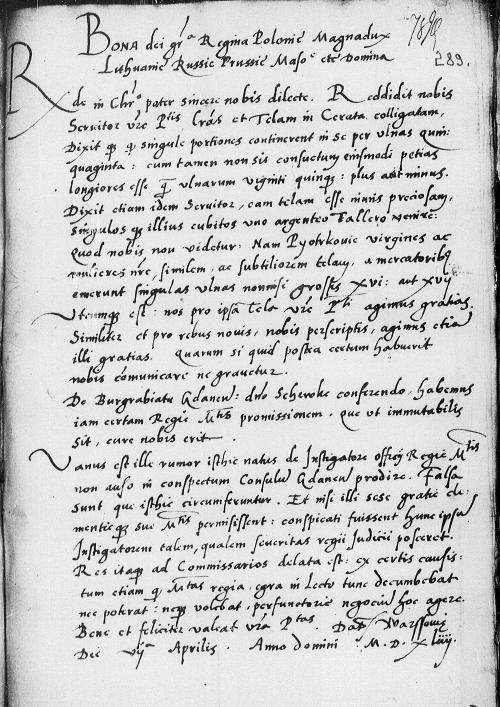 7890
289.
Bona dei gr̃a Regina Polonie Magnadux
Lithuanie Russie Prussie Maso^e etc Domina
Rde in Chr̃o pater sincere nobis dilecte. Reddidit nobis
Servitor vr̃e Ptis lr̃as et Telam in Cerata colligatam,
Dixit qꝫ singule portiones continerent in se per ulnas quin-
quaginta: cum tamen non sit consuetum eiusmodi petias
longiores esse q̃ ulnarum viginti quinqꝫ: plus aut minus.
Dixit etiam idem Servitor, eam telam esse nimis preciosam,
singulos qꝫ illius cubitos uno argenteo Tallero venire:
Quod nobis non videtur: Nam Pyotrkovie virgines ac
mulieres nr̃e, similem, ac subtiliorem telam, a mercatoribꝫ
emerunt singulas ulnas nonnisi grossis xvi: aut xvij
Utcumqꝫ est: nos pro ipsa Tela vr̃e Pti agimus gratias.
Similiter et pro rebus novis, nobis perscriptis, agimus etiã
illi gratias. Quarum si quid postea certum habuerit
nobis cõmunicare ne gravetur.
De Burgrabiatu Gdaneñ: dño Scheroke conferendo, habemus
iam certam Regie Mtis promissionem. Que ut immutabilis
sit, cure nobis erit.
Vanus est ille rumor isthic natus de Instigatore officij Regie Mtis
non auso in conspectum Consulũ Gdaneñ prodire. Falsa
sunt que isthic circumferuntur. Et nisi illi sese gratie cle-
mentieqꝫ sue Mtis permisissent: conspicati fuissent hunc ipsũ
Instigatorem talem, qualem severitas regii Judicii posceret.
Res itaqꝫ ad Commissarios delata est: ex certis causis:
tum etiam q, Mtas regia, egra in Lectu tunc decumbebat
nec poterat: neqꝫ volebat, perfunctorie negociũ hoc agere.
Bene et feliciter valeat vr̃a Ptas. Dat̃ Warssovie
Die vijᵃ Aprilis. Anno domini M. D. xliiij.